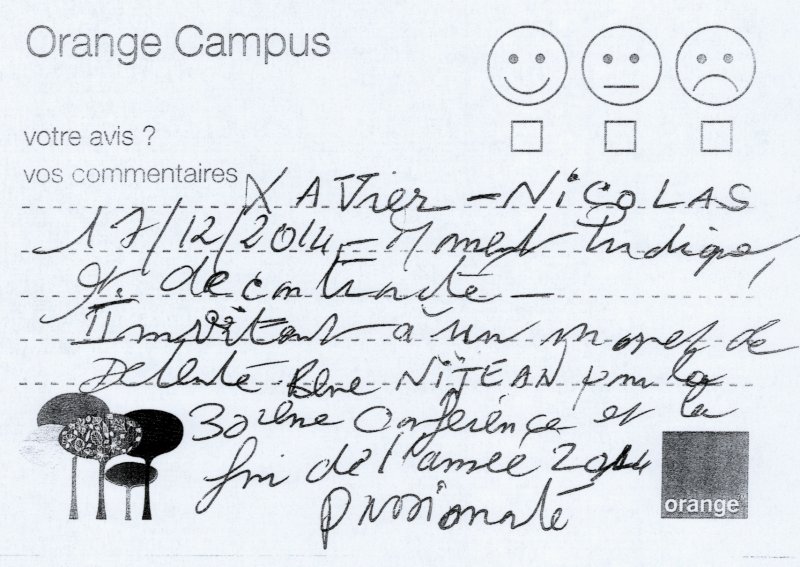 Orange Campus
votre avis ?
vos commentaires
XAVier - NiCOLAS
17/12/2014 - Moment ludique,
et decontracté -
Invitant à un moment de
Detente pour la
30ieme Conférence et la
fin de l'année 2014
passionaté
orange